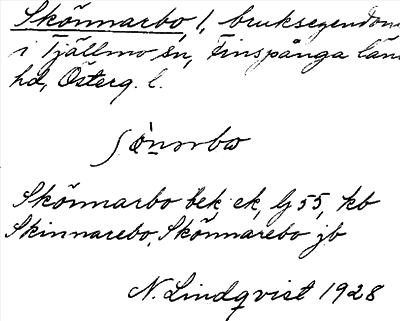 Skönnarbo, 1, bruksegendom
i Tjällmo sn, Finspånga län
hd, Österg. l.
Skönnarbo bek. ek, lj 55, kb
Skinnarebo, Skönnarebo jb
N. Lindqvist 1928